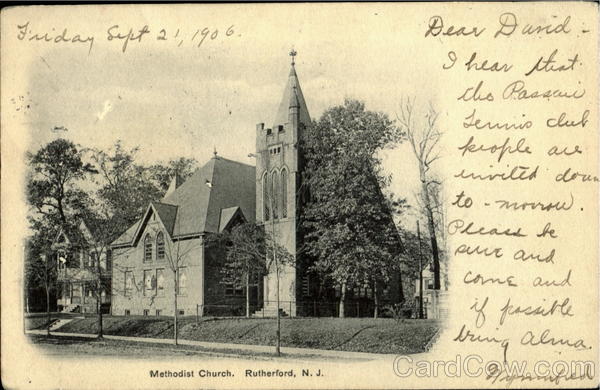 Friday Sept 21, 1906.
Dear David -
I hear that
the Passaic
Tennis club
people are
invited down
to-morrow.
Please be
sure and
come and
if possible
bring Alma.
Methodist Church. Rutherford, N. J.
CardCow.com